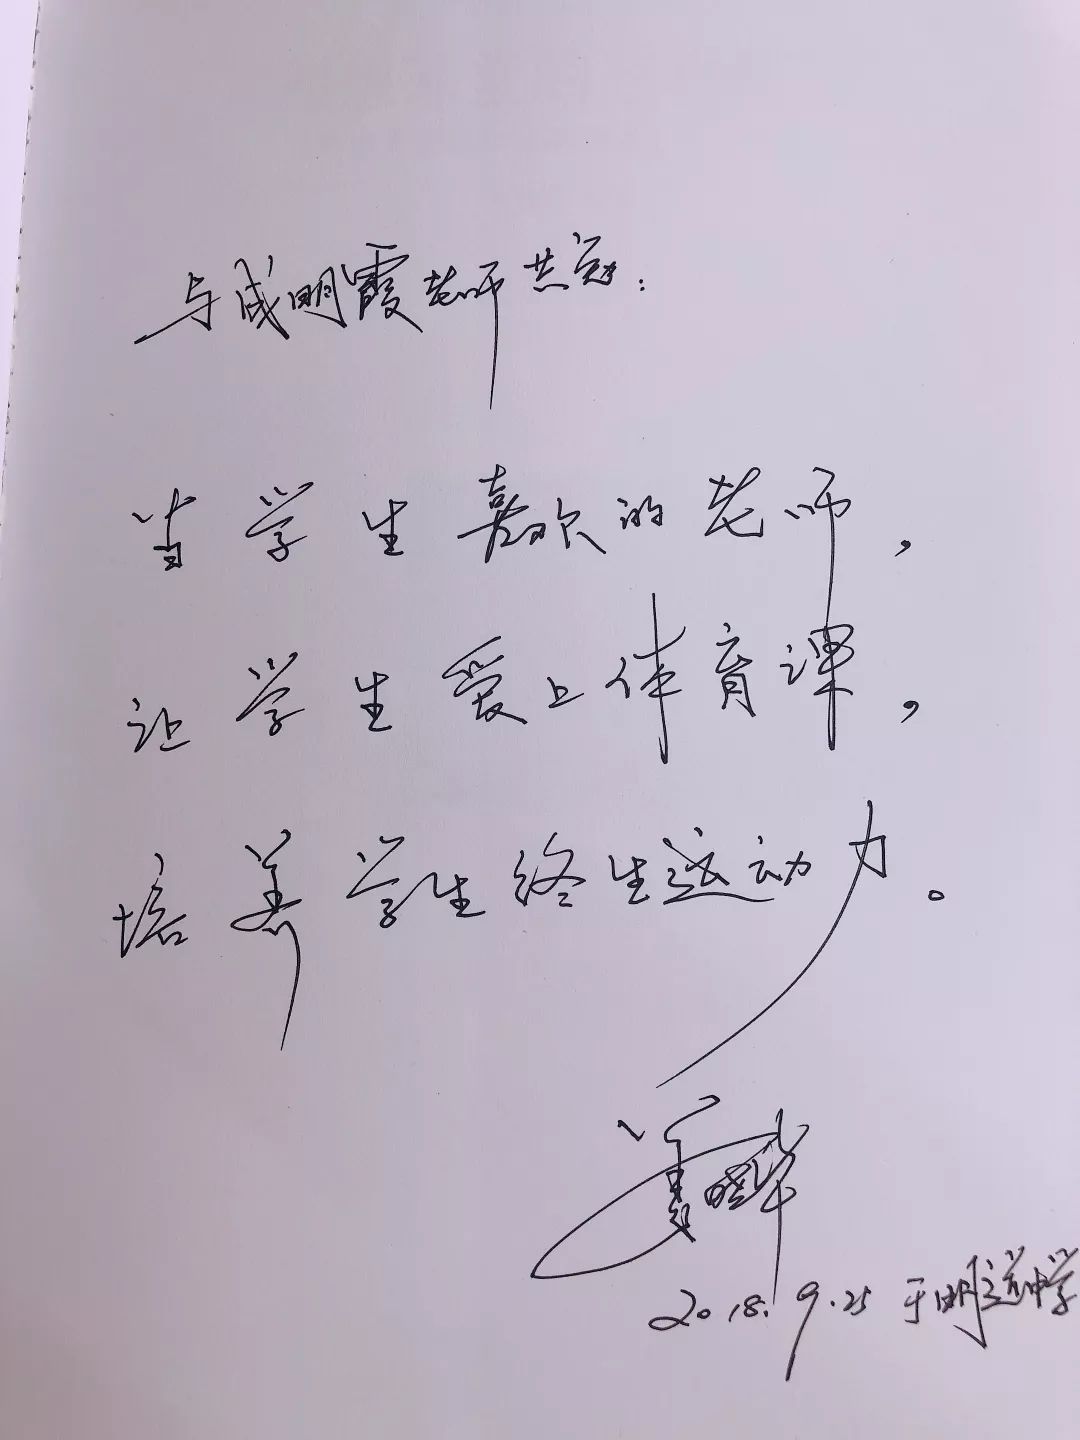 与成明霞老师共冠：
当学生喜欢的老师，
让学生爱上体育课，
培养学生终生运动力。
姜晓华
2018.9.25 于明道中学